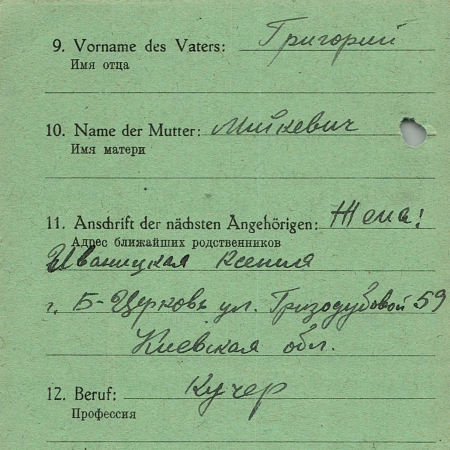 9. Vorname des Vaters: Григорий
Имя отца
10. Name der Mutter: Мийкевич
Имя матери
11. Anschrift der nächsten Angehörigen: Жена:
Адрес ближайших родственников
Иваницкая Ксения
г. Б-Церковь ул. Гризодубовой 59
Киевская обл.
12. Beruf: Кучер
Профессия